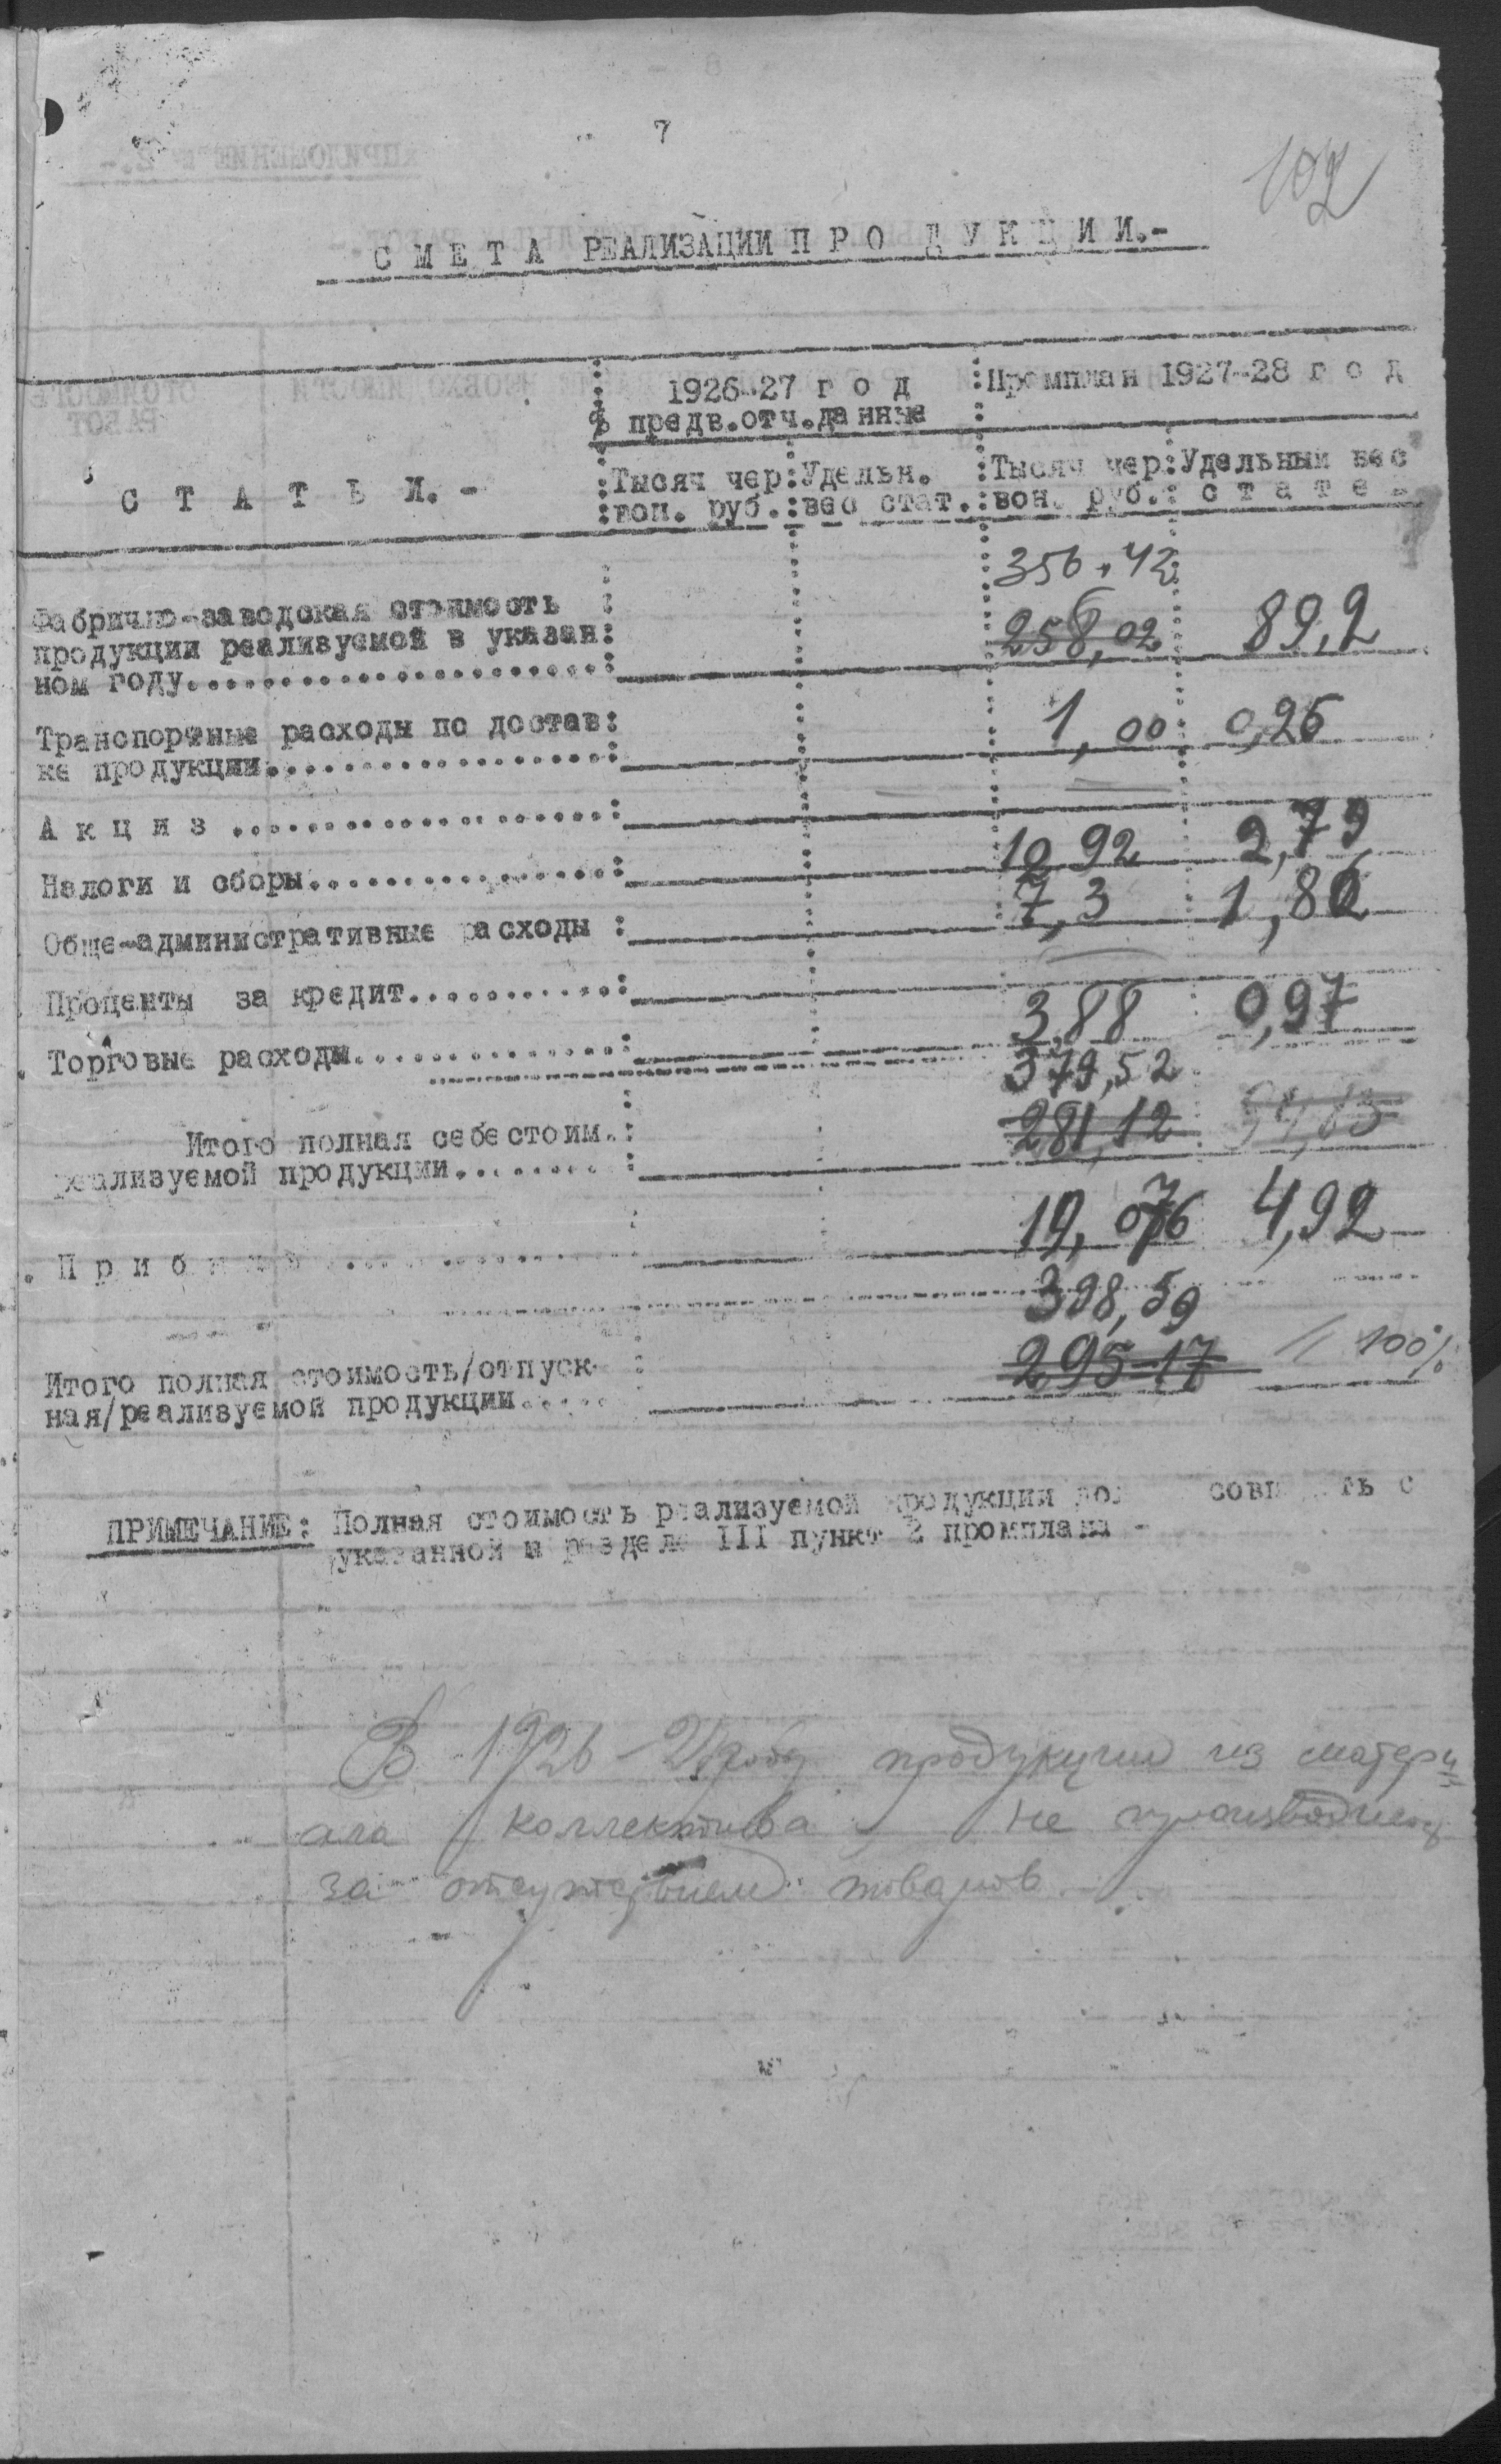 7
102
С М Е Т А РЕАЛИЗАЦИИ П Р О Д У К Ц И И.-
1926-27 г о д
предв.отч.данные
Промплан 1927-28 г о д
С Т А Т Ь И.-
Тысяч чер
вон. руб.
Удельн.
вес стат.
Тысяч чер
вон. руб.
Удельный вес
с т а т е
356,42
Фабрично-заводская стоимость
продукции реализуемой в указан: 258,02 89,2
ном году
Транспортные расходы по достав: 1,00 0,26
ке продукции
А к ц и з —
Налоги и сборы 10,92 2,79
Обще-административные расходы : 7,3 1,86
Проценты за кредит —
Торговые расходы 3,88 0,97
379,52
Итого полная себестоим.: 281,12
реализуемой продукции
П р и б 4,92
398,59
Итого полная стоимость/отпуск- 295-17 100%
ная/реализуемой продукции
ПРИМЕЧАНИЕ: Полная стоимость реализуемой продукции с
указанной в разделе III пункт 2 промплана -
В 1926-27 году продукции из матери
ала коллектива не производилось
за отсутствием товаров